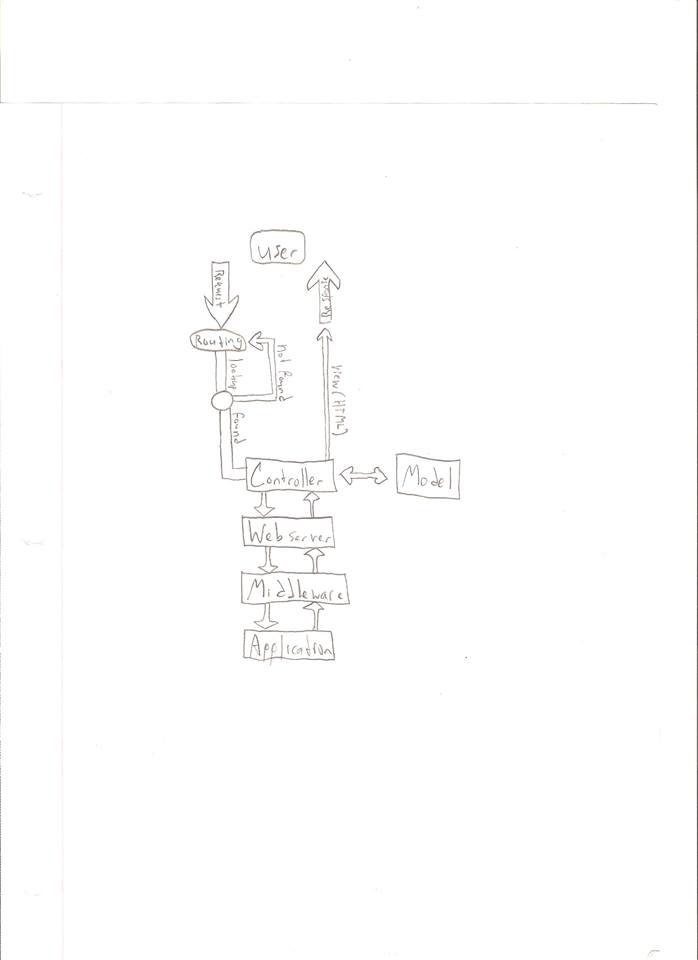 User
Request
Response
Routing
lookup
not found
View(HTML)
found
Controller
Model
Webserver
Middleware
Application